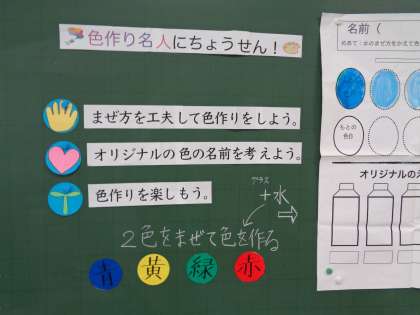 色作り名人にちょうせん！
まぜ方を工夫して色作りをしよう。
オリジナルの色の名前を考えよう。
色作りを楽しもう。
プラス
+水
2色をまぜて色を作る
青 黄 緑 赤
名前（
めあて：水のまぜ方をかえて色
もとの
色白
オリジナルのえ